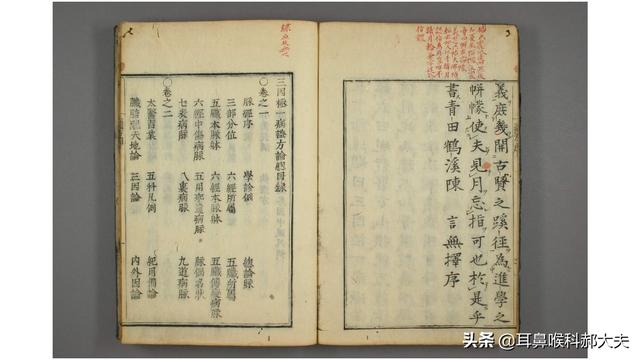 義庶幾開古賢之蹊徑為進學之
帲幪使夫見月忘指可也於是乎
書青田鶴溪陳 言無擇序
三因極一病證方論總目錄
○卷之一
脉經序 學診例 總論脉
三部分位 六經所屬 五臟所屬
五臟本脉體 六經本脉體 五臟傳變病脉
六經中傷病脉 五用乖違病脉 脉偶名狀
七表病脉 八裏病脉 九道病脉
○卷之二
太醫習業 五科凡例 紀用備論
臟腑配天地論 三因論 內外因論
头条 @耳鼻喉科郝大夫